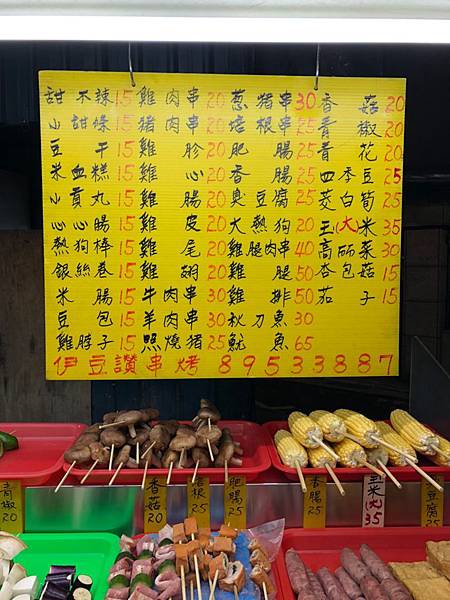 甜不辣15 雞肉串20 蔥豬串30 香菇20
小甜條15 豬肉串20 培根串25 青椒20
豆干15 雞胗20 肥腸25 青花20
米血糕15 雞心20 香腸25 四季豆25
小貢丸15 雞腸20 臭豆腐25 茭白筍25
心心腸15 雞皮20 大熱狗20 玉(大)米35
熱狗棒15 雞尾20 雞腿肉串40 高麗菜30
銀絲卷15 雞翅20 雞腿50 杏包菇15
米腸15 牛肉串30 雞排50 茄子15
豆包15 羊肉串30 秋刀魚30
雞脖子15 照燒豬25 魷魚65
伊豆讚串烤 89533887
青椒20
香菇20
培根
肥腸20
香腸
玉米(大)35
豆腐25